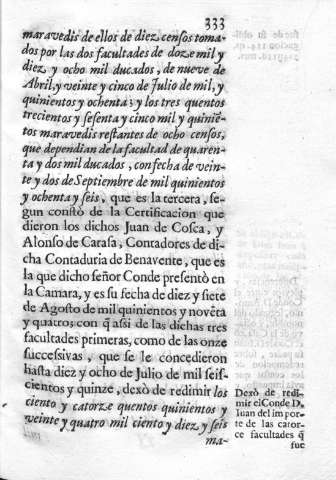 333
maravedis de ellos de diez censos toma-
dos por las dos facultades de doze mil y
diez y ocho mil ducados, de nueve de
Abril, y veinte y cinco de Julio de mil, y
quinientos y ochenta; y los tres quentos
trecientos y sesenta y cinco mil y quiniē-
tos maravedis restantes de ocho censos,
que dependian de la facultad de quaren-
ta y dos mil ducados, con fecha de vein-
te y dos de Septiembre de mil quinientos
y ochenta y seis, que es la tercera, se-
gun constò de la Certificacion que
dieron los dichos Juan de Cosca, y
Alonso de Carasa, Contadores de di-
cha Contaduria de Benavente, que es
la que dicho señor Conde presentò en
la Camara, y es su fecha de diez y siete
de Agosto de mil quinientos y novēta
y quatro: con q̄ assi de las dichas tres
facultades primeras, como de las onze
successivas, que se le concedieron
hasta diez y ocho de Julio de mil seis-
cientos y quinze, dexò de redimir los
ciento y catorze quentos quinientos y
veinte y quatro mil ciento y diez y seis
ma-
Dexò de redi-
mir el Conde D.
Juan del impor-
te de las cator-
ce facultades q̄
fue